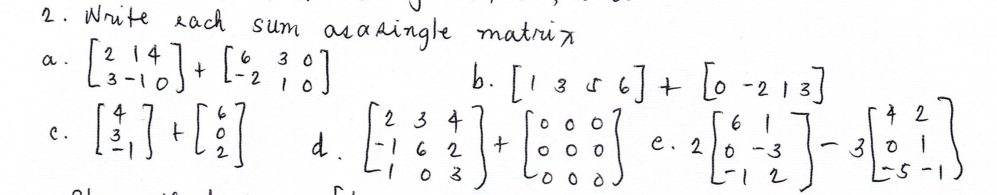 2. Write each sum as a single matrix
a. [2 1 4; 3 -1 0] + [6 3 0; -2 1 0]
b. [1 3 5 6] + [0 -2 1 3]
c. [4; 3; -1] + [6; 0; 2]
d. [2 3 4; -1 6 2; 1 0 3] + [0 0 0; 0 0 0; 0 0 0]
e. 2[6 1; 0 -3; -1 2] - 3[4 2; 0 1; -5 -1]